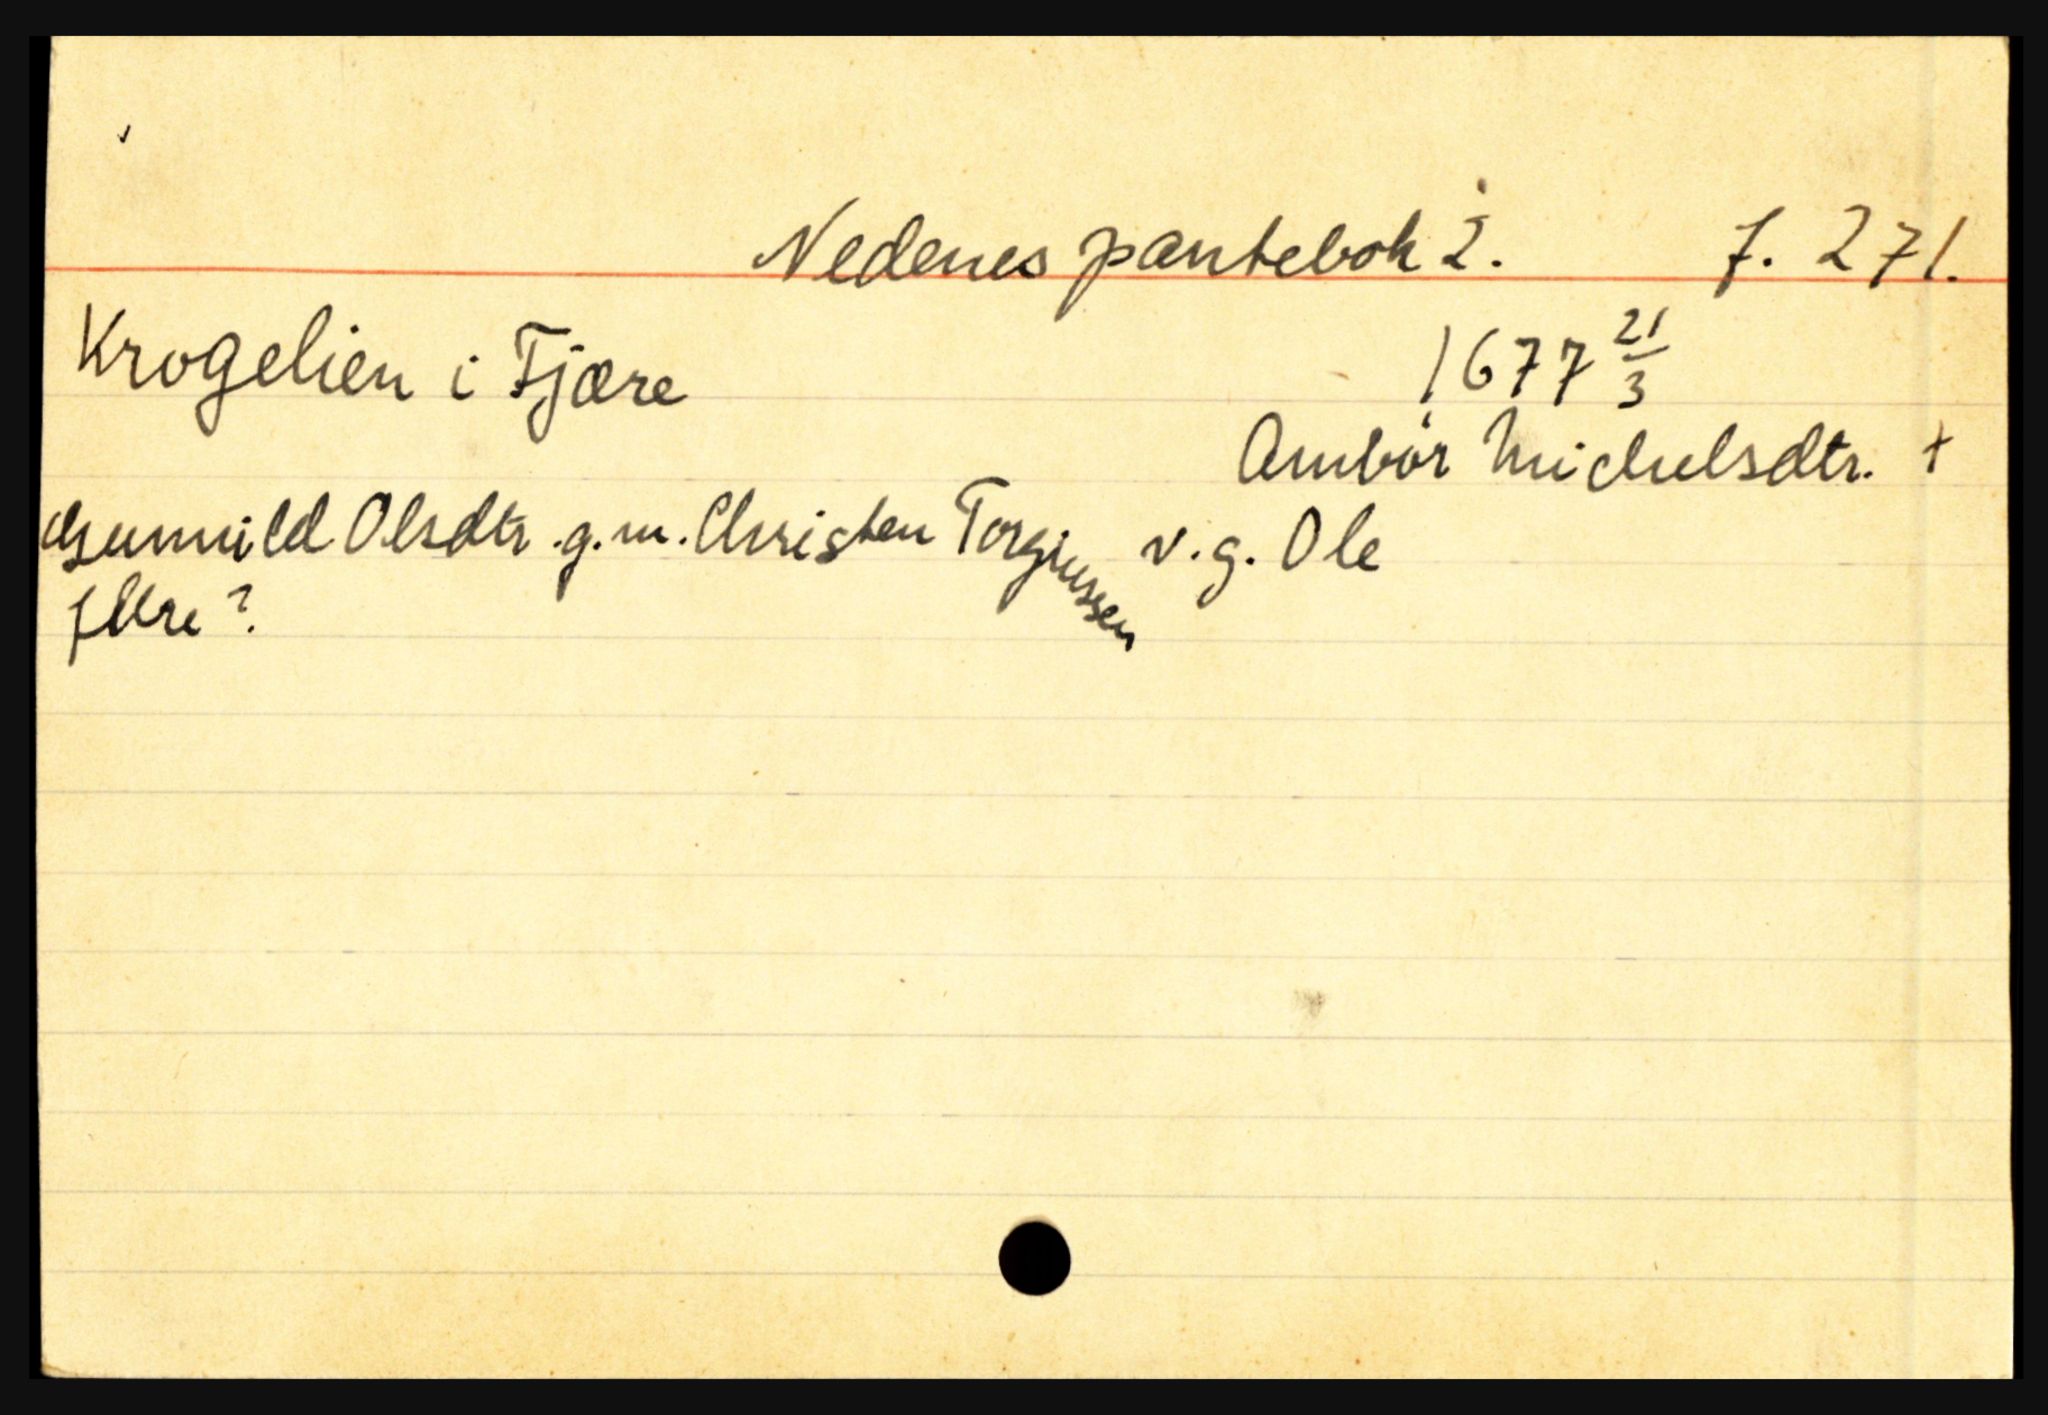 Nedenes pantebok 2. f. 271.
Krogelien i Fjære 1677 21/3
Ambør Michelsdtr. +
Gunnild Olsdtr. g.m. Christen Torgiussen v.g. Ole
flere?